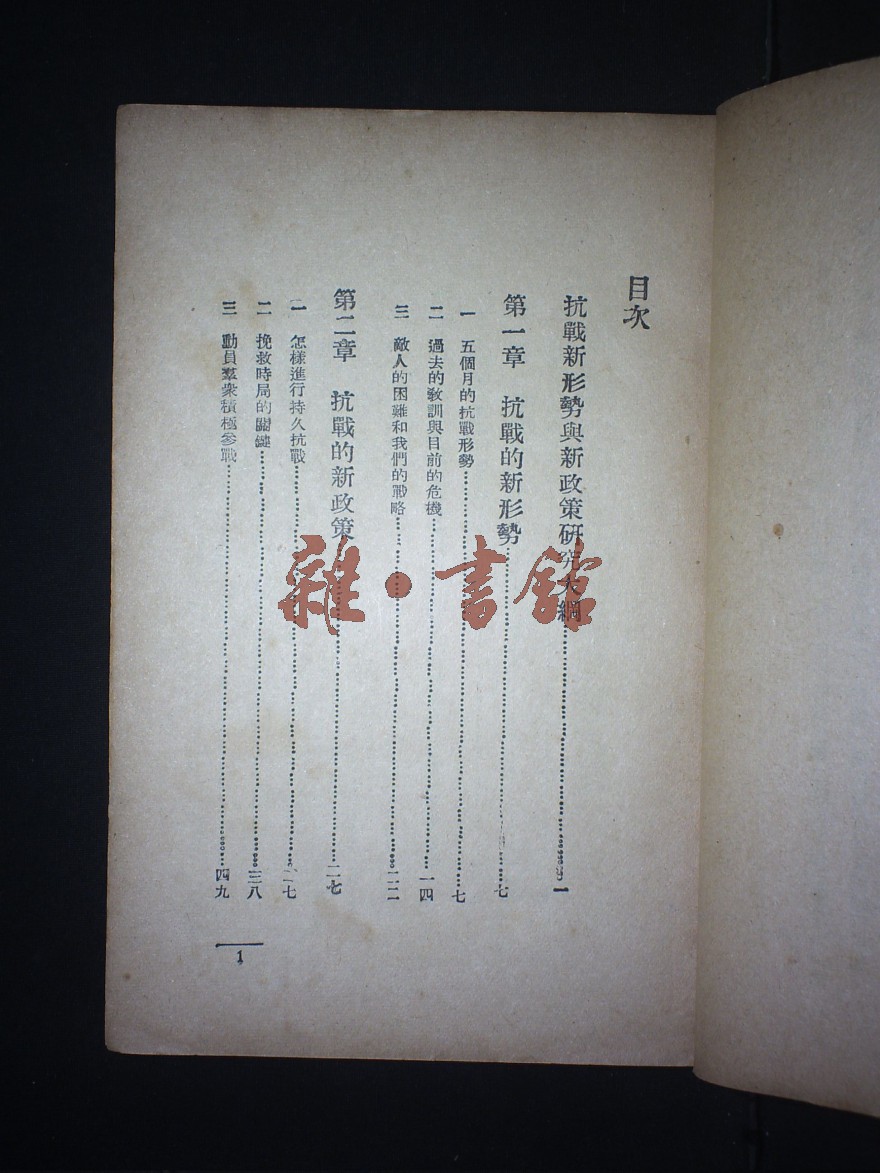 目次
抗戰新形勢與新政策研究大綱……一
第一章　抗戰的新形勢……七
一　五個月的抗戰形勢……七
二　過去的敎訓與目前的危機……一四
三　敵人的困難和我們的戰略……二二
第二章　抗戰的新政策……二七
一　怎樣進行持久抗戰……二七
二　挽救時局的關鍵……三八
三　動員羣衆積極參戰……四九
1
雜·書館